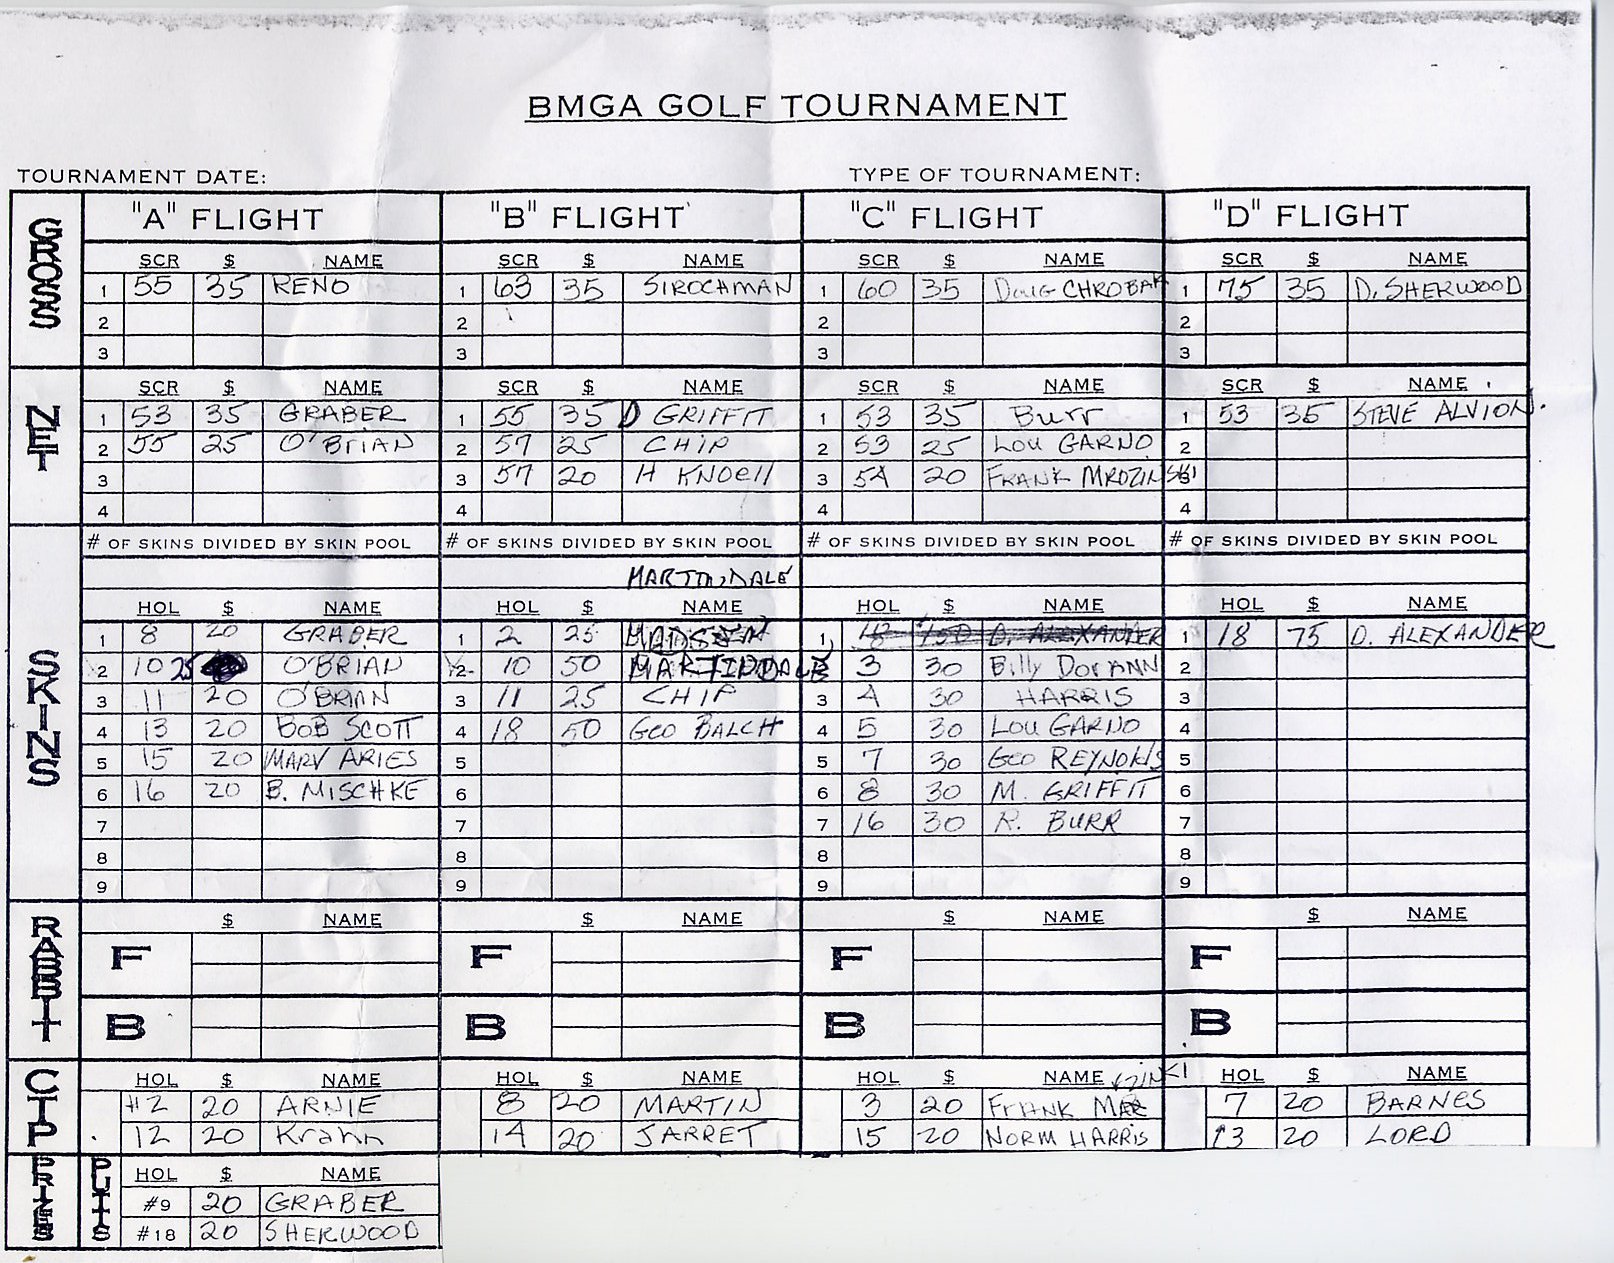 BMGA GOLF TOURNAMENT
TOURNAMENT DATE: TYPE OF TOURNAMENT:
GROSS "A" FLIGHT "B" FLIGHT "C" FLIGHT "D" FLIGHT
SCR $ NAME SCR $ NAME SCR $ NAME SCR $ NAME
1 55 35 RENO 1 63 35 SIROCHMAN 1 60 35 Doug CHROBAK 1 75 35 D. SHERWOOD
2 2 2 2
3 3 3 3
NET SCR $ NAME SCR $ NAME SCR $ NAME SCR $ NAME
1 53 35 GRABER 1 55 35 D GRIFFIT 1 53 35 Burr 1 53 35 STEVE ALVION.
2 55 25 O'BRIAN 2 57 25 CHIP 2 53 25 LOU GARNO 2
3 3 57 20 H KNOEll 3 54 20 FRANK MROZINSKI 3
4 4 4 4
SKINS # OF SKINS DIVIDED BY SKIN POOL # OF SKINS DIVIDED BY SKIN POOL # OF SKINS DIVIDED BY SKIN POOL # OF SKINS DIVIDED BY SKIN POOL
MARTINDALE
HOL $ NAME HOL $ NAME HOL $ NAME HOL $ NAME
1 8 20 GRABER 1 2 25 1 18 150 D. ALEXANDER 1 18 75 D. ALEXANDER
2 10 25 O'BRIAN 2 10 50 MARTINDALE 2 3 30 Billy DorANN 2
3 11 20 O'BRIAN 3 11 25 CHIP 3 4 30 HARRIS 3
4 13 20 BOB SCOTT 4 18 50 GEO BALCH 4 5 30 LOU GARNO 4
5 15 20 MARV ARIES 5 5 7 30 GEO REYNOldS 5
6 16 20 B. MISCHKE 6 6 8 30 M. GRIFFIT 6
7 7 7 16 30 R. BURR 7
8 8 8 8
9 9 9 9
RABBIT $ NAME $ NAME $ NAME $ NAME
F F F F
B B B B
CTP HOL $ NAME HOL $ NAME HOL $ NAME HOL $ NAME
#2 20 ARNIE 8 20 MARTIN 3 20 FRANK 7 20 BARNES
12 20 Krahn 14 20 JARRET 15 20 NORM HARRIS 13 20 LORD
PRIZES PUTTS HOL $ NAME
#9 20 GRABER
#18 20 SHERWOOD